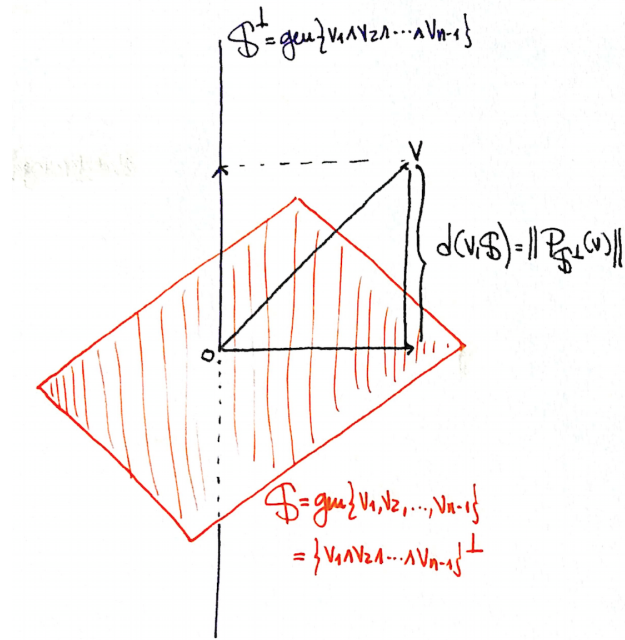 $^⊥ = gen{v1∧v2∧⋯∧vn-1}
v
d(v,$) = ‖P$⊥(v)‖
0
$ = gen{v1,v2,...,vn-1}
= {v1∧v2∧⋯∧vn-1}^⊥